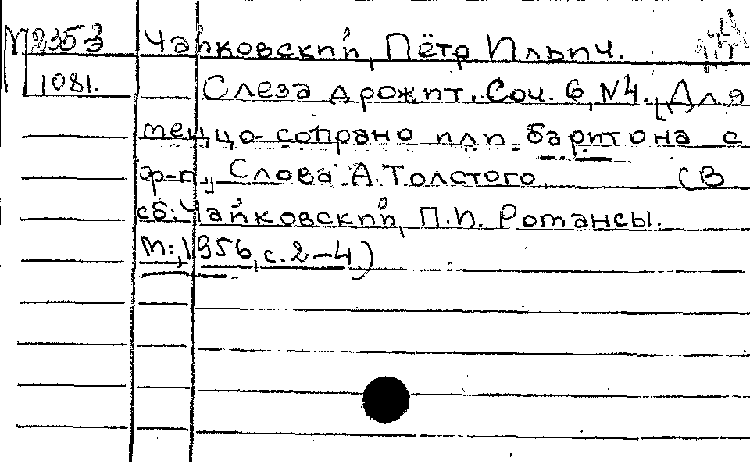 М 8353 Чайковский, Пётр Ильич.
1081. Слеза дрожит. Соч. 6, N4. [Для
меццо-сопрано или баритона с
ф-п., Слова А.Толстого (В
сб: Чайковский, П.И. Романсы.
М:, 1956, с. 2-4)